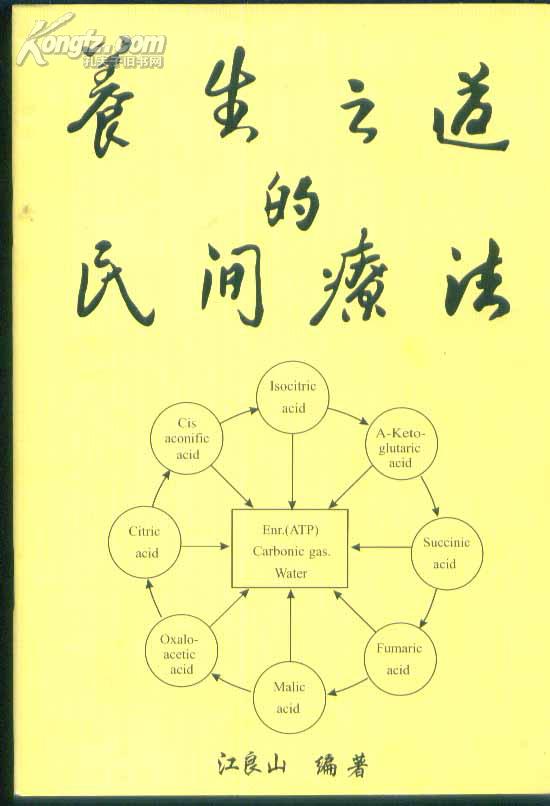 Kongfz.com
孔夫子旧书网
養生之道
的
民间療法
Isocitric
acid
A-Keto-
glutaric
acid
Succinic
acid
Fumaric
acid
Malic
acid
Oxalo-
acetic
acid
Citric
acid
Cis
aconific
acid
Enr.(ATP)
Carbonic gas.
Water
江良山 编著